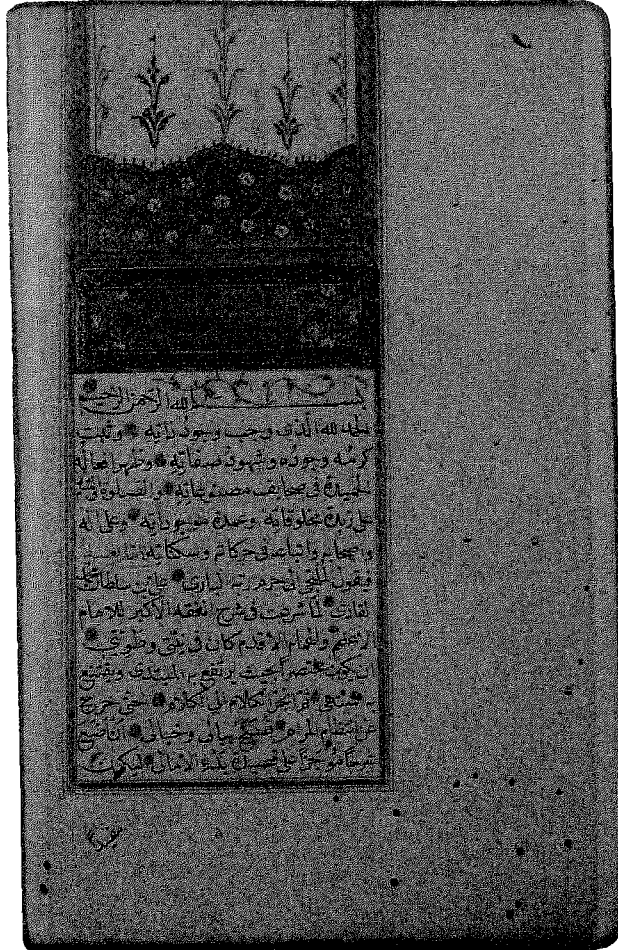 بسم الله الرحمن الرحيم
الحمد لله الذي وجب وجود ذاته وثبت
كرمه وجوده وشهود صفاته وظهر افعاله
الحميدة في صحايف مصنوعاته والصلوة
على زبدة مخلوقاته وعمدة موجوداته وعلى اله
واصحابه واتباعه في حركاته وسكناته
فيقول الملتجي الى حرم ربه الباري علي بن سلطان محمد
القاري لما شرعت في شرح الفقه الاكبر للامام
الاعظم والهمام الاقدم كان في
ان يكون مختصرا بحيث ينتفع به المبتدي ويقتنع
به المنتهي ثم انجر الكلام الى الكلام حتى خرج
عن نظام المرام في بالي وخيالي ان اضع
على قصيدة بدء الامالي ليكون